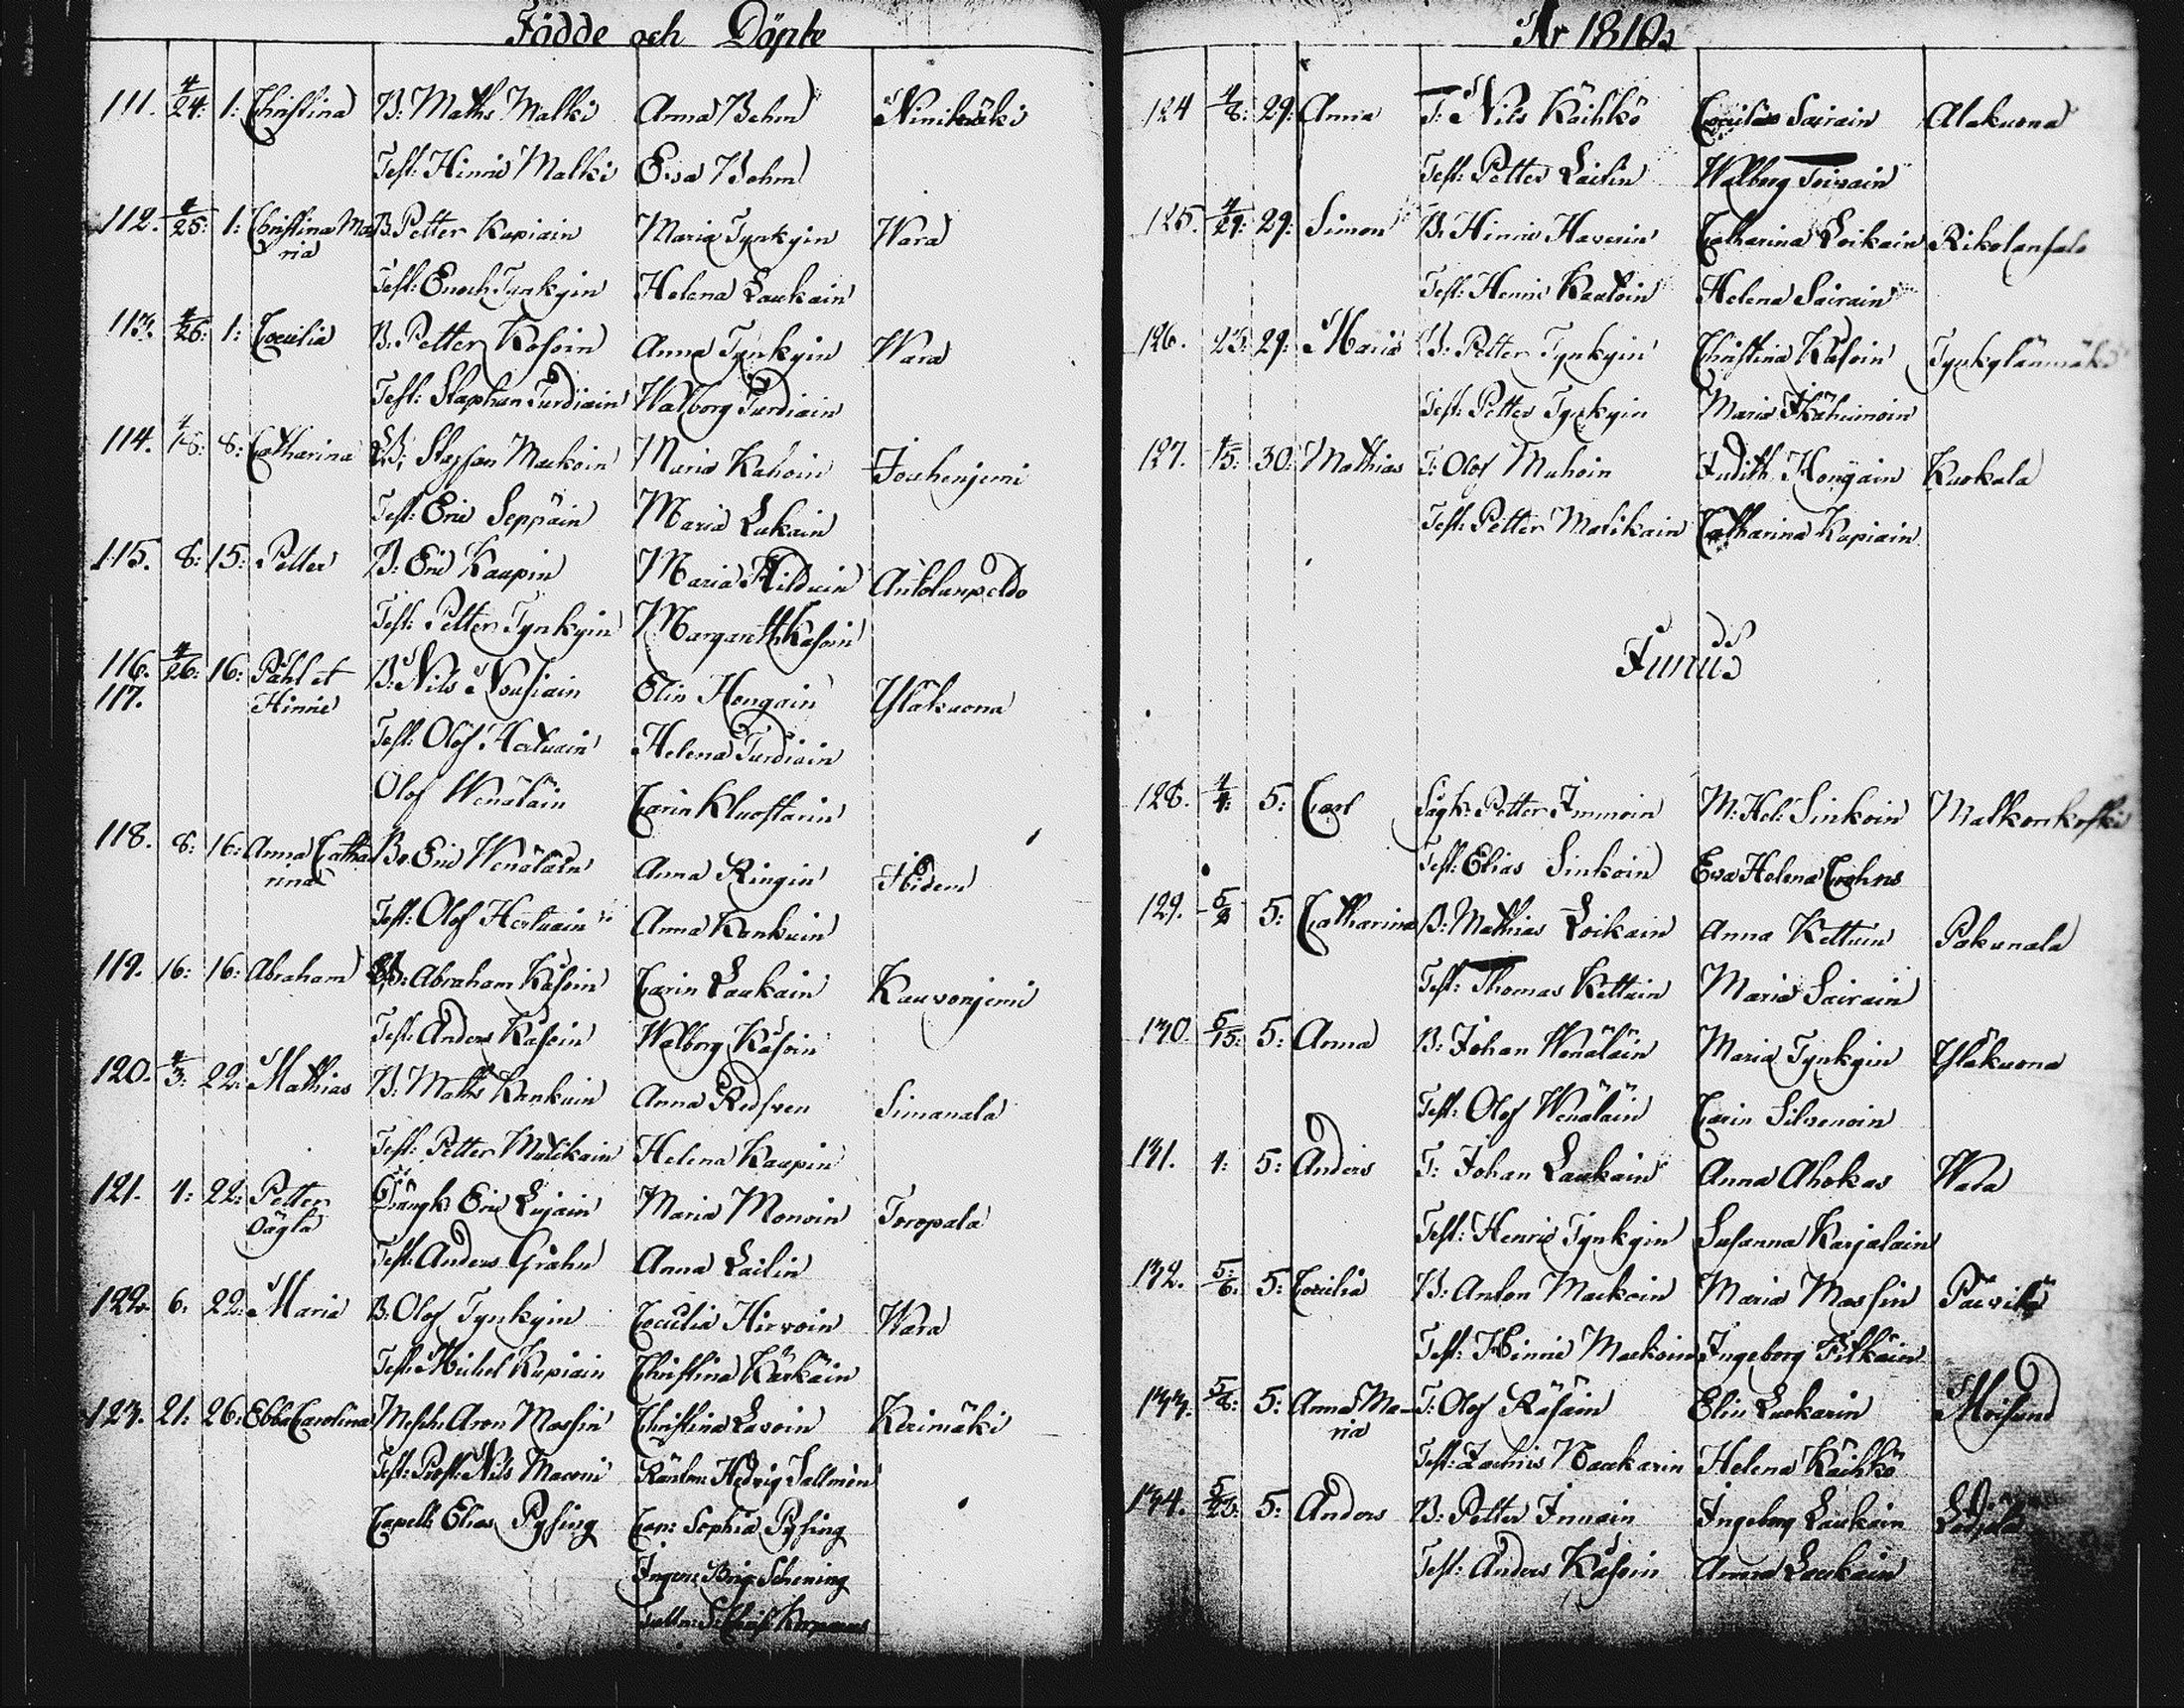 Födde och Döpte
111. 4/24: 1: Christina B: Maths Malki Anna Behm Niinimäki
Test: Hinric Malki Eva Behm
112. 4/25: 1: Christina Ma B: Petter Kupiain Maria Tynkyin Wara
ria
Test: Enoch Tynkyin Helena Laukain
113. 4/26: 1: Coecilia B: Petter Kosoin Anna Tynkyin Wara
Test: Staphan Turdiain Walborg Turdiain
114. 4/18: 8: Catharina B: Staffan Mackoin Maria Kahoin Jouhenjemi
Test: Eric Seppäin Maria Lukain
115. 8: 15: Petter B: Eric Kaupin Maria Hilduin Anttolanpeldo
Test: Petter Tynkyin Margareth Kasoin
116. 4/26: 16: Påhl et B: Nils Nousiain Elin Hongain Yläkuona
117. Hinric
Test: Olof Hartuain Helena Turdiain
Olof Wenäläin Carin Kluostarin
118. 8: 16: Anna Catha B: Eric Wenäläin Anna Ringin Ibidem
rina
Test: Olof Hartuain Anna Kankuin
119. 16: 16: Abraham B: Abraham Käsoin Carin Laukain Kauvonjemi
Test: Anders Kasoin Walborg Käsoin
120. 4/3: 22: Mathias B: Maths Kankuin Anna Redsven Simanala
Test: Petter Mulikain Helena Kaupin
121. 4: 22: Petter Drängk: Eric Lujain Maria Monoin Toropala
oägta
Test: Anders Grahn Anna Lailin
122. 6: 22: Maria B: Olof Tynkyin Coecilia Hirvoin Wara
Test: Michel Kupiain Christina Kärkäin
123. 21: 26: Ebba Carolina Aron Massin Christina Lavoin Kerimäki
Test: Prost: Nils Maconi Hedvig Tallmén
Capell: Elias Pysing Cap: Sophia Pysing
Brig: Schening
År 1810.
124 4/8: 29: Anna T: Nils Käihkö Coecilia Sairain Alakuona
Test: Petter Lailin Walborg Toivain
125. 4/29: 29: Simon B: Hinric Haverin Catharina Loikain Rikolansalo
Test: Henric Kautoin Helena Sairain
126. 23: 29: Maria B: Petter Tynkyin Christina Käsoin Tynkylänmäki
Test: Petter Tynkyin Maria Ikäheimoin
127. 4/15: 30: Mathias T: Olof Muhoin Judith Hongain Kuokala
Test: Petter Matikain Catharina Kupiain
Junius
128. 4/4: 5: Carl Petter Immoin M: Hel: Sinkoin Makkonkoski
Test: Elias Sinkoin Eva Helena Crohns
129. 5/8 5: Catharina B: Mathias Loikain Anna Kettuin Pokunala
Test: Thomas Kettuin Maria Sairain
130. 5/15: 5: Anna B: Johan Wenäläin Maria Tynkyin Yläkuona
Test: Olof Wenäläin Carin Silvenoin
131. 4: 5: Anders T: Johan Laukain Anna Ahokas Wara
Test: Henric Tynkyin Susanna Karjalain
132. 5/6: 5: Coecilia B: Anton Mackoin Maria Massin Päivilä
Test: Hinric Mackoin Ingeborg Pitkäin
133. 5/8: 5: Anna Ma- T: Olof Räsäin Elin Luokarin Moisund
ria
Test: Zachris Naukarin Helena Käihkö
134. 5/23: 5: Anders B: Petter Innain Ingeborg Laukain
Test: Anders Käsoin Anna Laukain